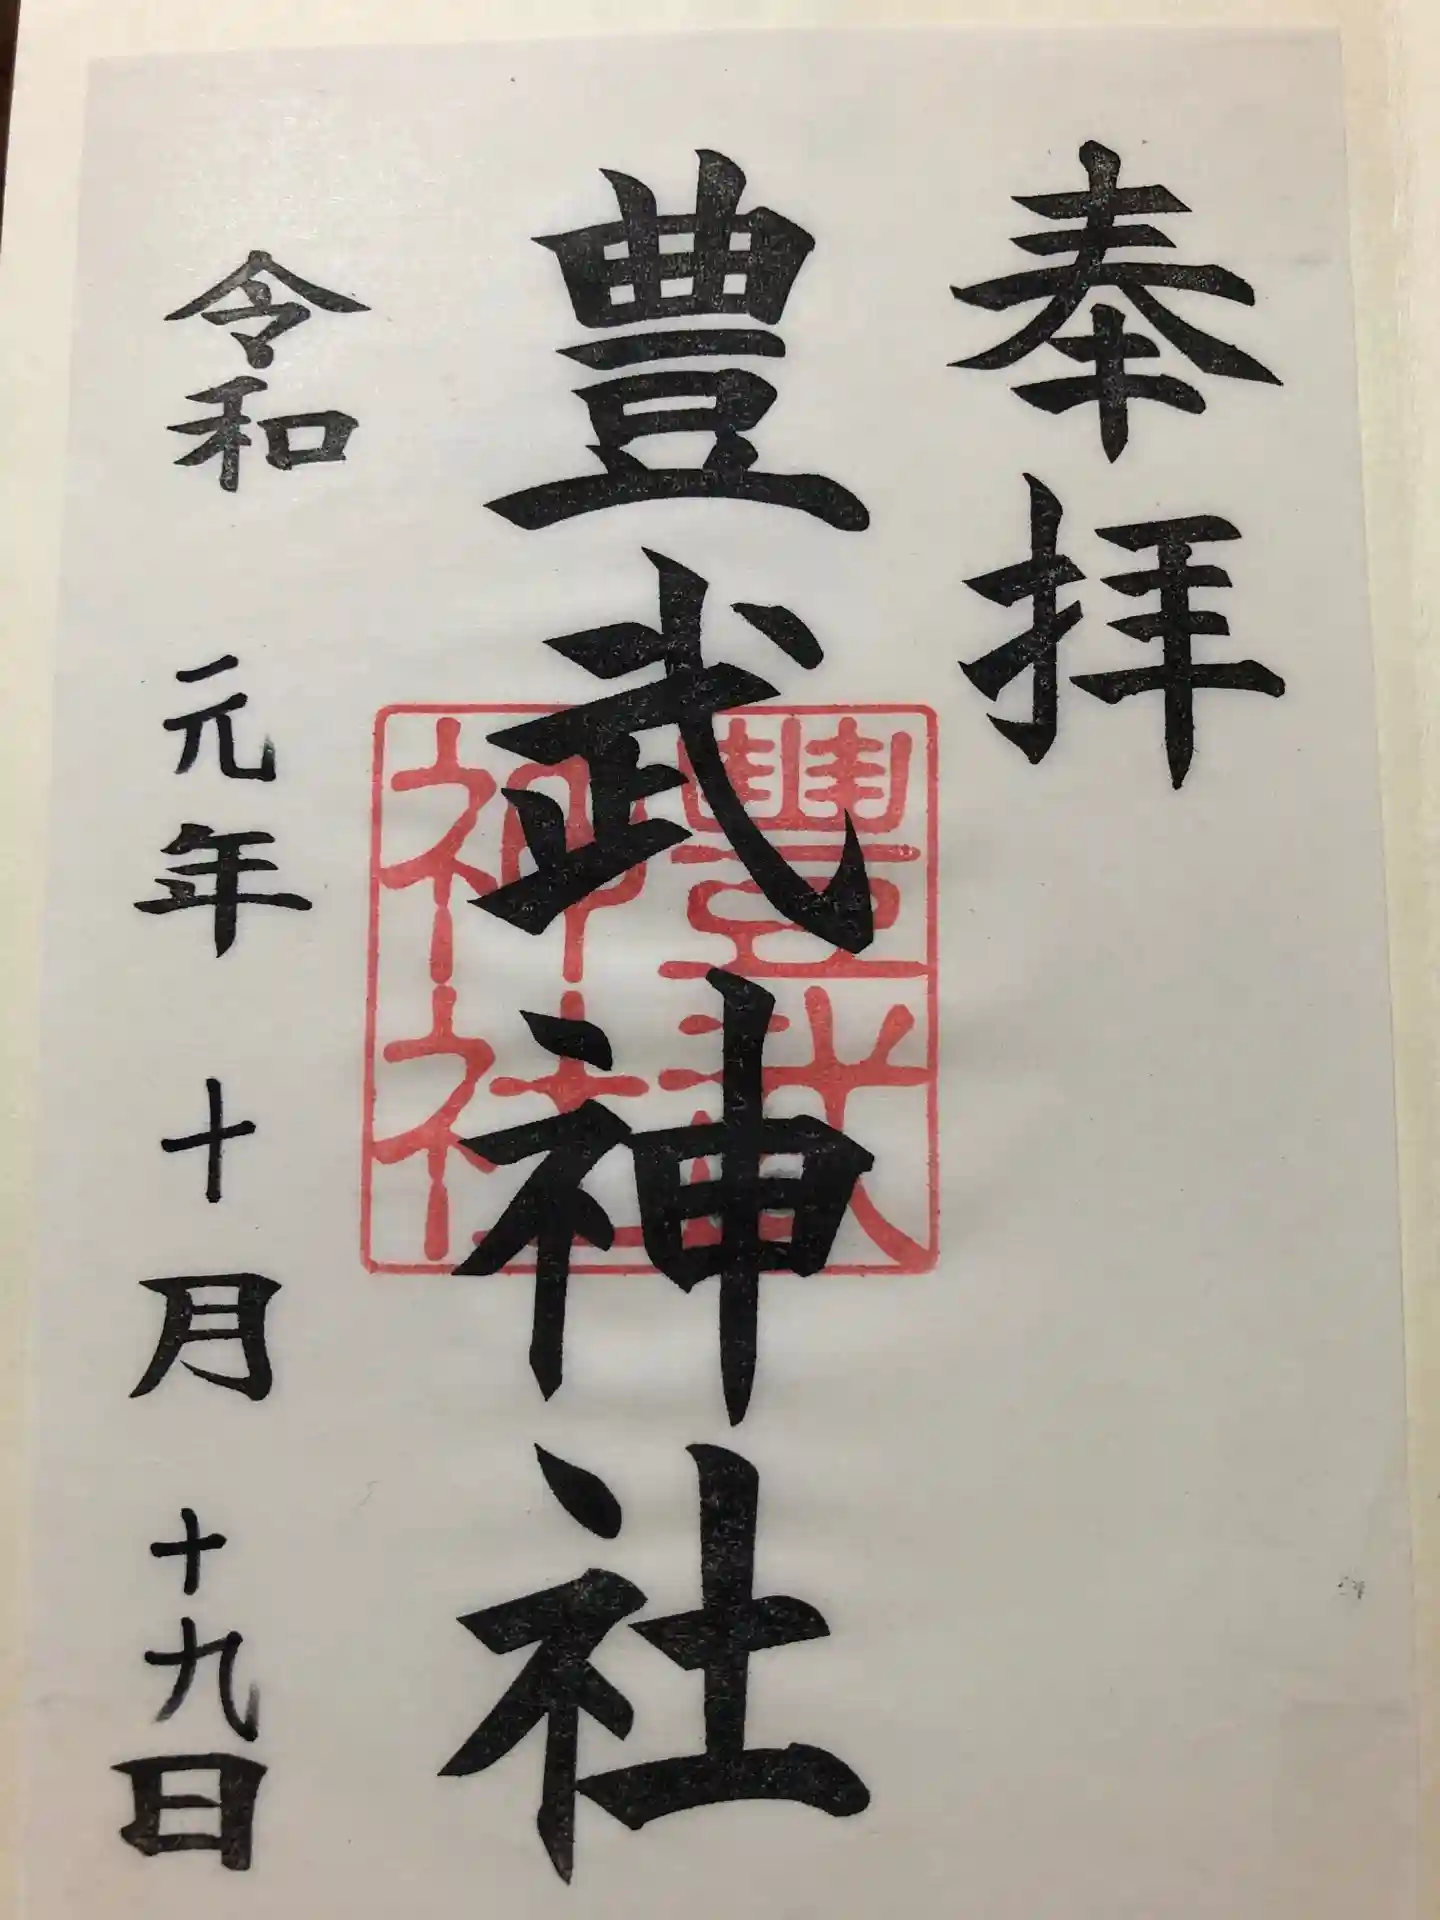 奉拝
豊武神社
豐武
神社
令和元年十月十九日